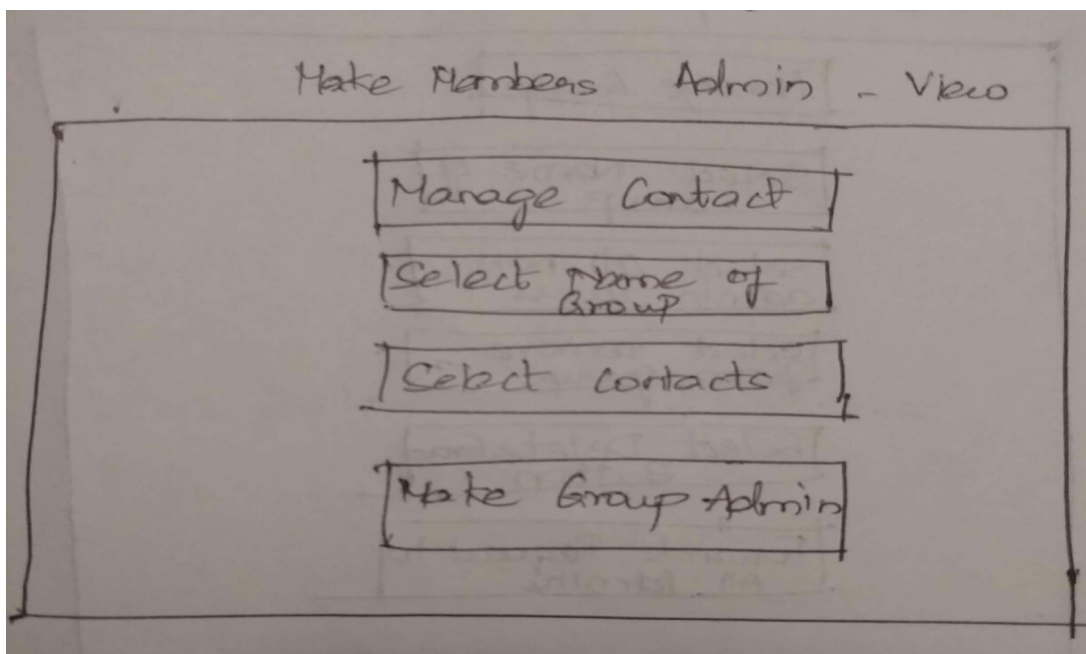 Make Members Admin - View
Manage Contact
Select Name of
Group
Select contacts
Make Group Admin